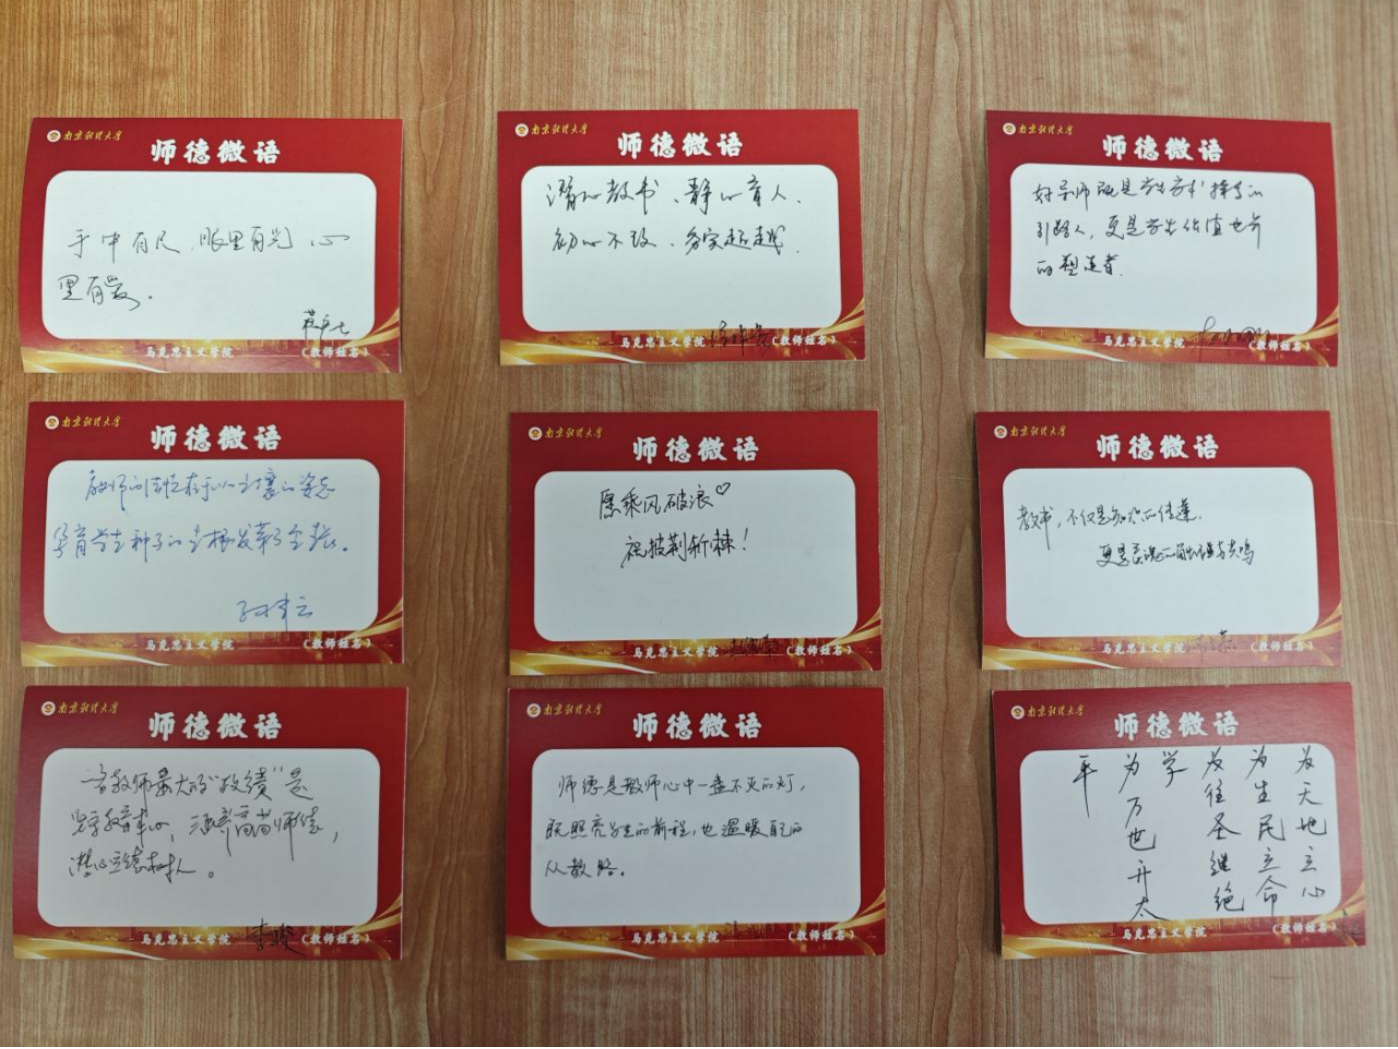 南京财经大学
师德微语
手中有尺、眼里有光、心
里有爱。
马克思主义学院
(教师姓名)
南京财经大学
师德微语
潜心教书、静心育人、
初心不改、务实超越
马克思主义学院
(教师姓名)
南京财经大学
师德微语
好导师既是学生学术探索的
引路人,更是学生价值
的塑造者.
马克思主义学院
(教师姓名)
南京财经大学
师德微语
教师的在于以土壤的姿态
孕育学生种子的生根发芽
马克思主义学院
(教师姓名)
南京财经大学
师德微语
愿乘风破浪♡
祝披荆斩棘!
马克思主义学院
(教师姓名)
南京财经大学
师德微语
教书,不仅是知识的传递.
更是灵魂的与共鸣
马克思主义学院
(教师姓名)
南京财经大学
师德微语
一名教师最大的“政绩”是
坚守教育本心,涵养高尚师德,
潜心立德树人。
马克思主义学院
李骏
(教师姓名)
南京财经大学
师德微语
师德是教师心中一盏不灭的灯,
既照亮学生的前程,也温暖自己的
从教路。
马克思主义学院
(教师姓名)
南京财经大学
师德微语
为天地立心
为生民立命
为往圣继绝
学
为万世开太
平
马克思主义学院
(教师姓名)